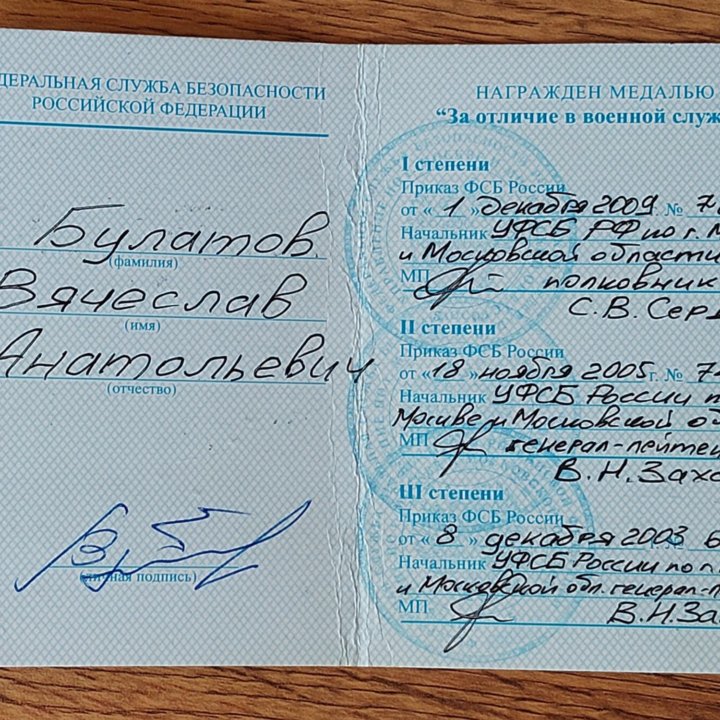 ДЕРАЛЬНАЯ СЛУЖБА БЕЗОПАСНОСТИ
РОССИЙСКОЙ ФЕДЕРАЦИИ
Булатов
(фамилия)
Вячеслав
(имя)
Анатольевич
(отчество)
(личная подпись)
НАГРАЖДЕН МЕДАЛЬЮ
“За отличие в военной служ
I степени
Приказ ФСБ России
от « 1 » декабря 2009 г. № 7
Начальник УФСБ РФ по г. М
и Московской области
МП полковник
С.В. Сер
II степени
Приказ ФСБ России
от «18» ноября 2005 г. № 7
Начальник УФСБ России п
Москве и Московской о
МП генерал-лейте
В.Н. Заха
III степени
Приказ ФСБ России
от « 8 » декабря 2003 6
Начальник УФСБ России по г.
и Московской обл. генерал-
МП В.Н. За